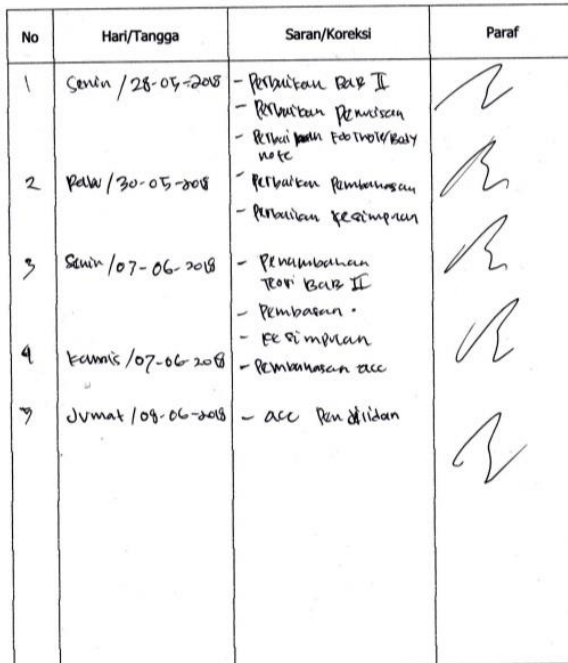 No Hari/Tangga Saran/Koreksi Paraf
1 Senin / 28-05-2018 - Perbaikan Bab II
- Perbaikan Penulisan
- Perbaikan Footnote/Body
note
2 Rabu / 30-05-2018 - Perbaikan Pembahasan
- Perbaikan Kesimpulan
3 Senin / 07-06-2018 - Penambahan
Teori BAB II
- Pembasan.
- Kesimpulan
4 Kamis / 07-06-2018 - Pembahasan acc
5 Jumat / 08-06-2018 - acc